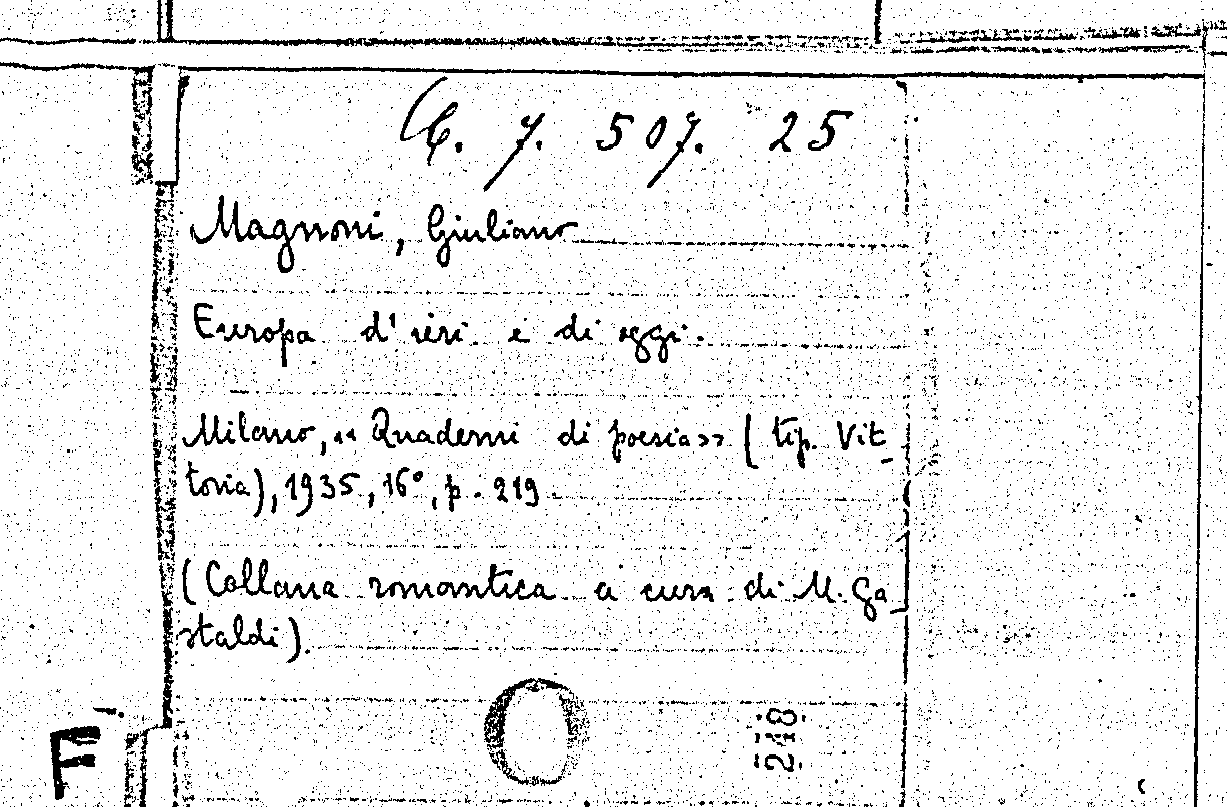 C. 7. 507. 25
Magnoni, Giuliano
Europa d'ieri e di oggi.
Milano, «Quaderni di poesia» (tip. Vit_
toria), 1935, 16°, p. 219
(Collana romantica a cura di M. Ga_
staldi).
248
F